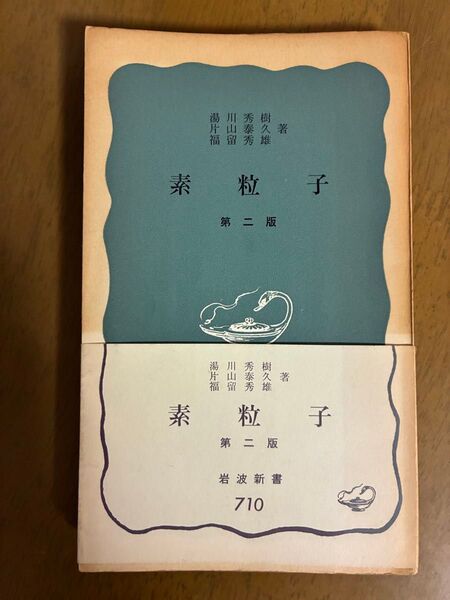 湯川秀樹
片山泰久著
福留秀雄
素粒子
第二版
湯川秀樹
片山泰久著
福留秀雄
素粒子
第二版
岩波新書
710